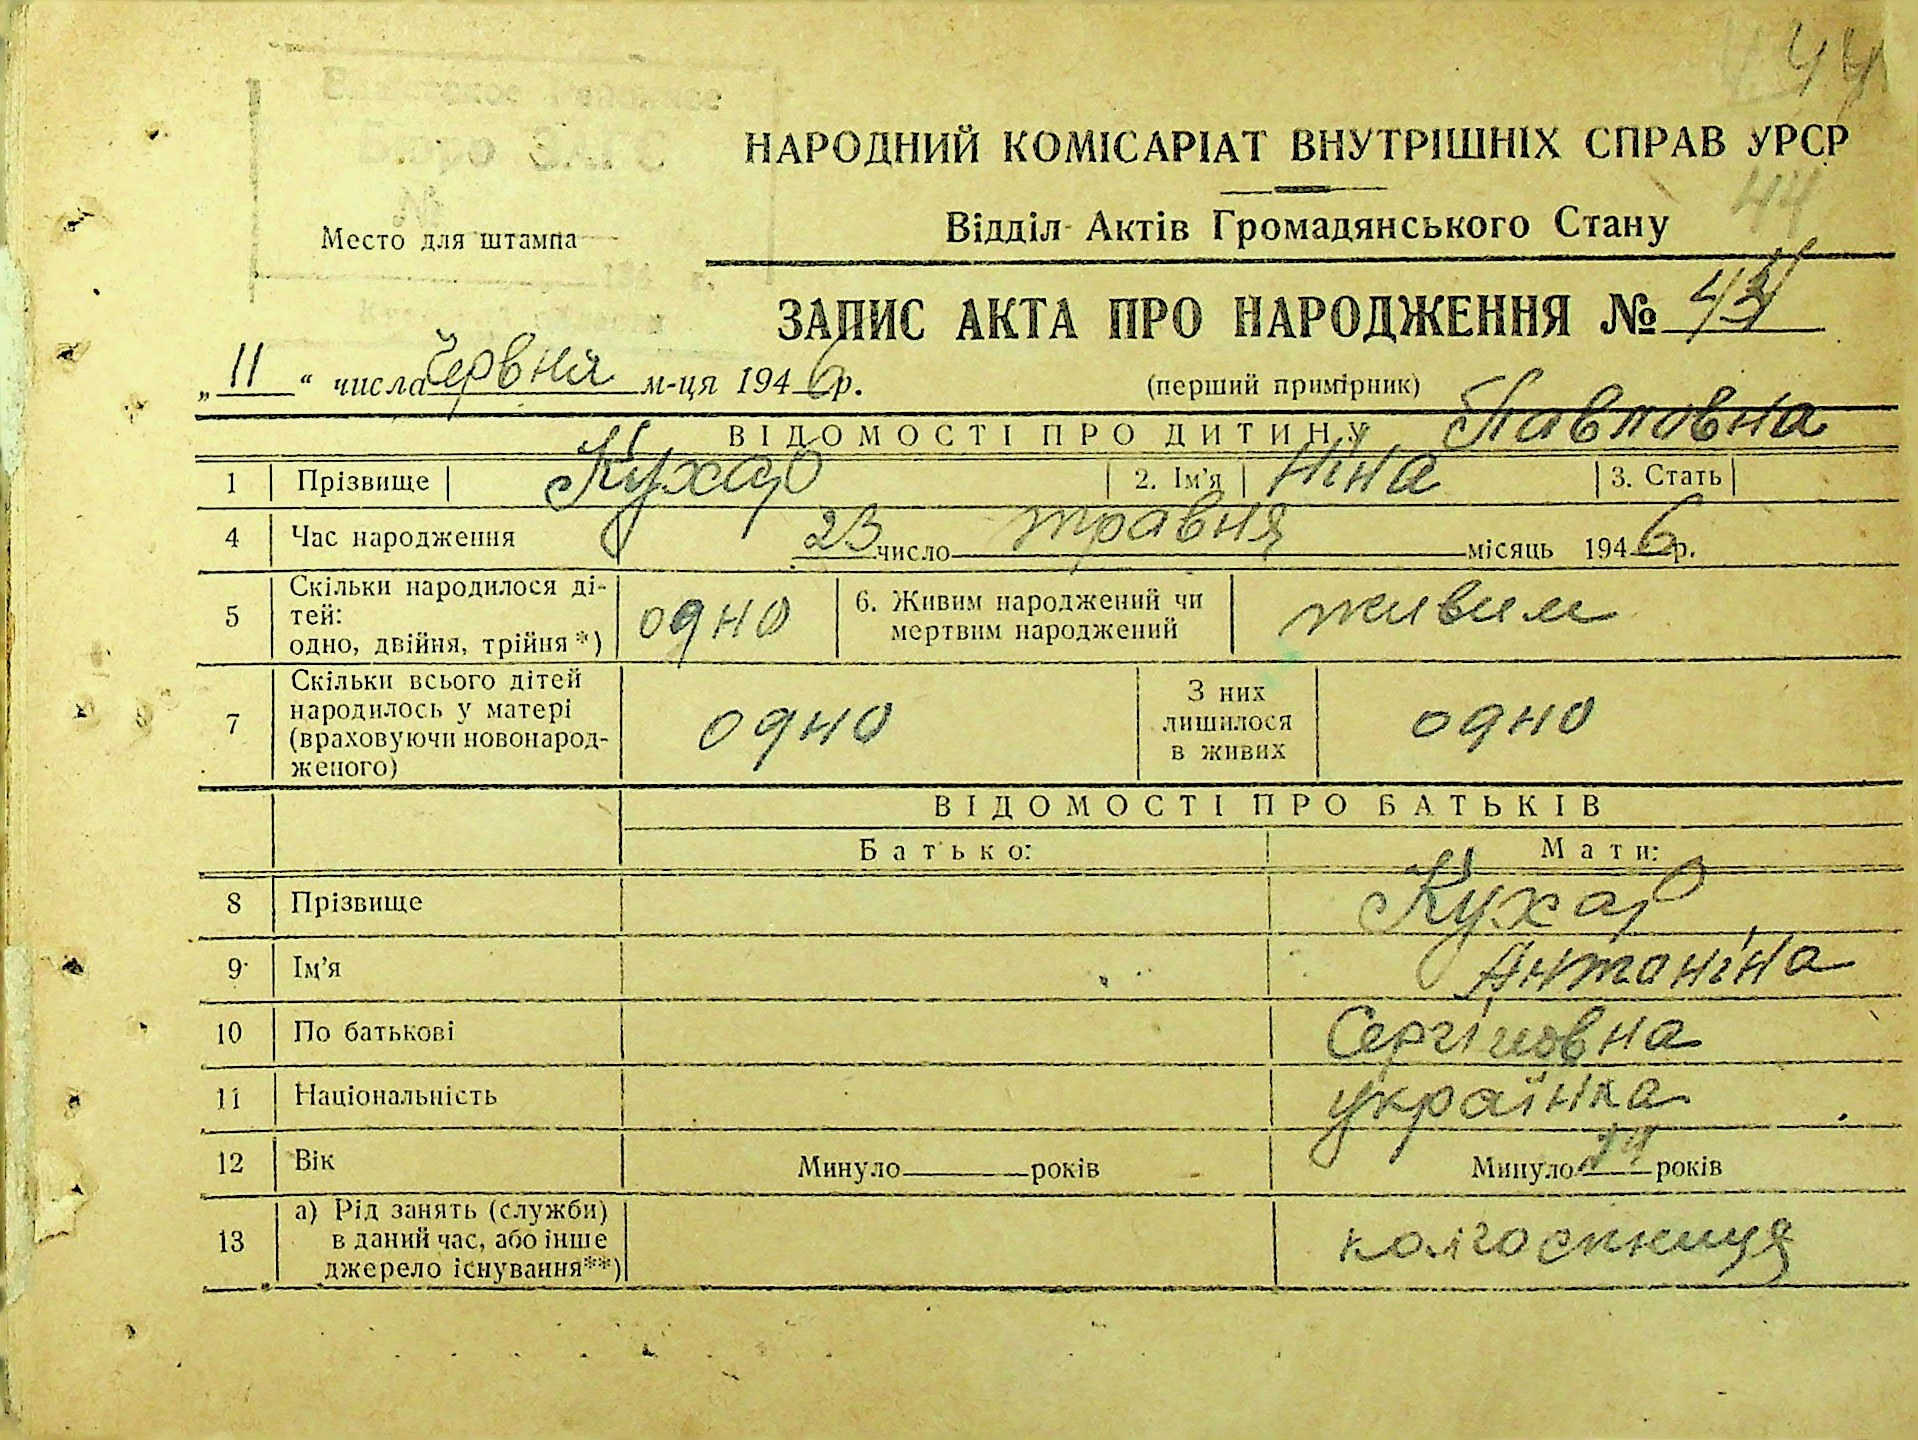 44
НАРОДНИЙ КОМІСАРІАТ ВНУТРІШНІХ СПРАВ УРСР
44
Бюро ЗАГС
№
Место для штампа
Відділ Актів Громадянського Стану
194 г.
ЗАПИС АКТА ПРО НАРОДЖЕННЯ №
„ 11 “ числа червня м-ця 1946 р.
(перший примірник)
Павловна
ВІДОМОСТІ ПРО ДИТИНУ
1 Прізвище Кухар 2. Ім'я Ніна 3. Стать
4 Час народження 23 число травня місяць 1946 р.
5 Скільки народилося ді-
тей:
одно, двійня, трійня*) одно 6. Живим народжений чи
мертвим народжений живим
7 Скільки всього дітей
народилось у матері
(враховуючи новонарод-
женого) одно З них
лишилося
в живих одно
ВІДОМОСТІ ПРО БАТЬКІВ
Батько: Мати:
8 Прізвище Кухар
9 Ім'я Антоніна
10 По батькові Сергіювна
11 Національність українка
12 Вік Минуло років Минуло років
13 а) Рід занять (служби)
в даний час, або інше
джерело існування**) колгоспниця